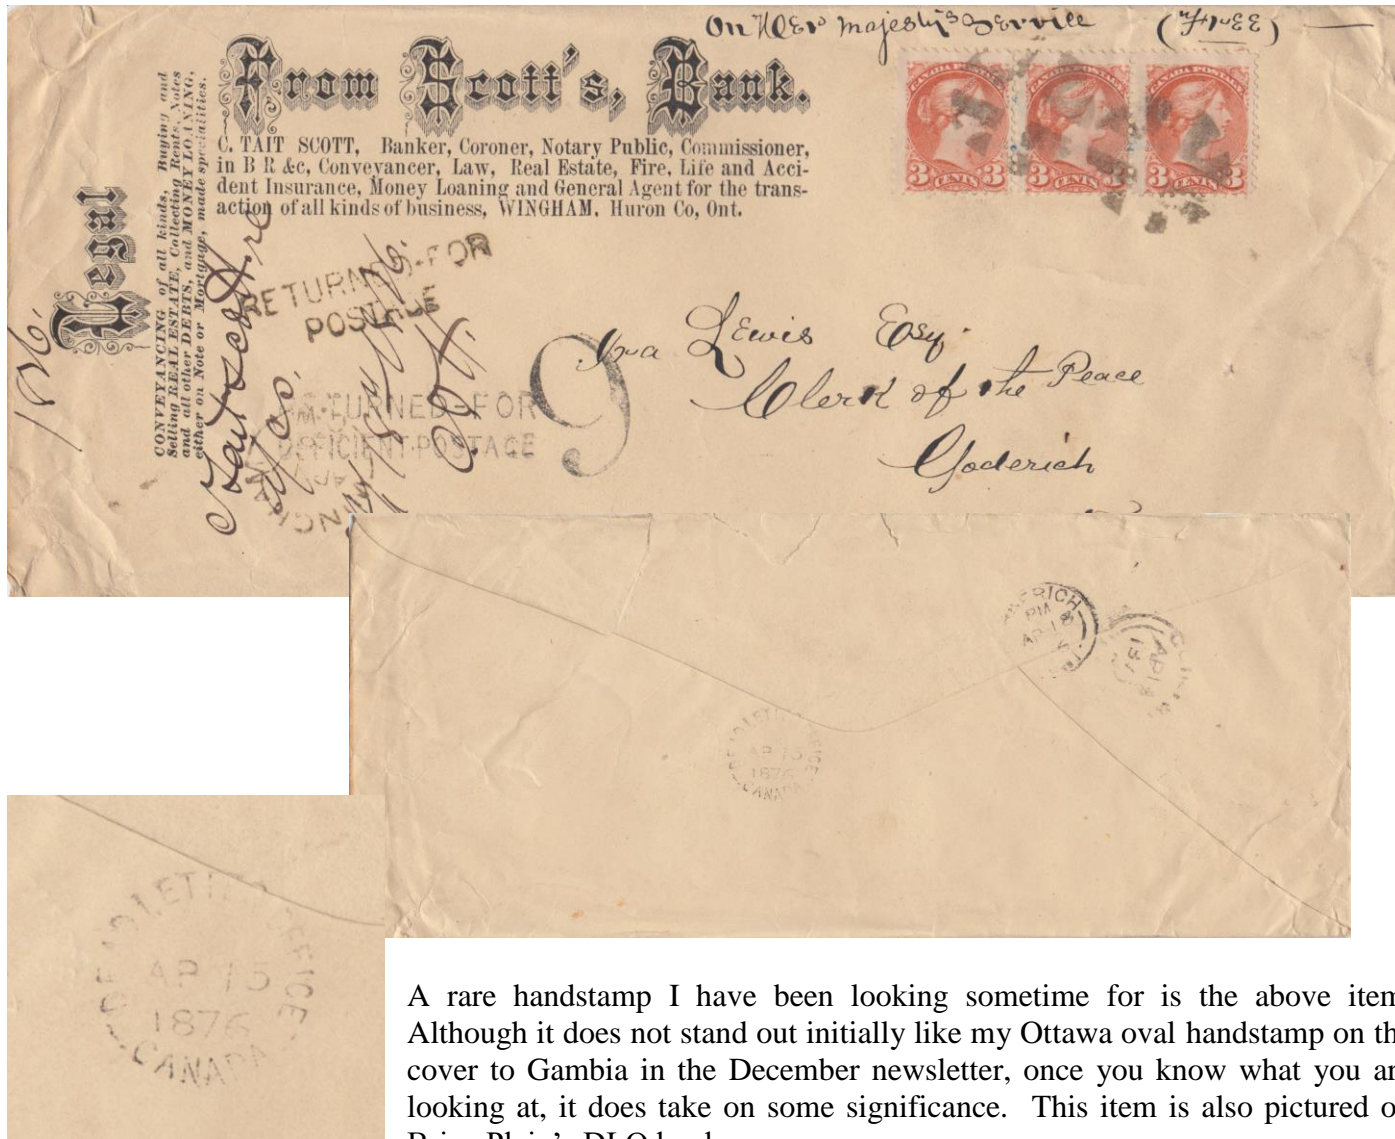 On Her Majesty's Service (Free)
From Scott's, Bank.
C. TAIT SCOTT, Banker, Coroner, Notary Public, Commissioner,
in B R &c, Conveyancer, Law, Real Estate, Fire, Life and Acci-
dent Insurance, Money Loaning and General Agent for the trans-
action of all kinds of business, WINGHAM. Huron Co, Ont.
Legal
CONVEYANCING of all kinds, Buying and
Selling REAL ESTATE, Collecting Rents, Notes
and all other DEBTS, and MONEY LOANING,
either on Note or Mortgage, made specialities.
CANADA POSTAGE
3 CENTS 3
CANADA POSTAGE
3 CENTS 3
CANADA POSTAGE
3 CENTS 3
RETURNED-FOR
POSTAGE
RETURNED-FOR
DEFICIENT-POSTAGE
9
Ira Lewis Esq.
Clerk of the Peace
Goderich
Tait Scott
PM
AP 18
AP 15
1876
CANADA
DEAD LETTER OFFICE
AP 15
1876
CANADA
A rare handstamp I have been looking sometime for is the above item
Although it does not stand out initially like my Ottawa oval handstamp on th
cover to Gambia in the December newsletter, once you know what you ar
looking at, it does take on some significance. This item is also pictured o